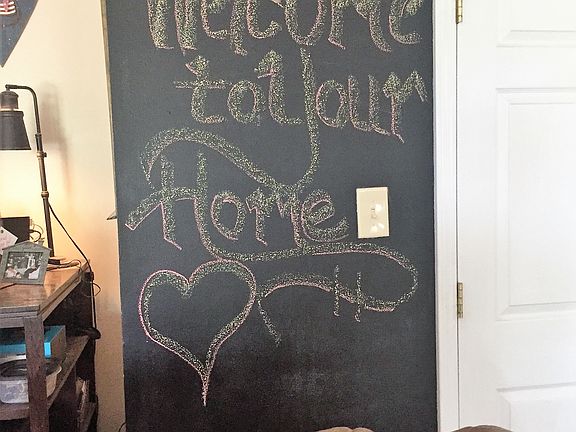 Welcome
to Your
Home
H